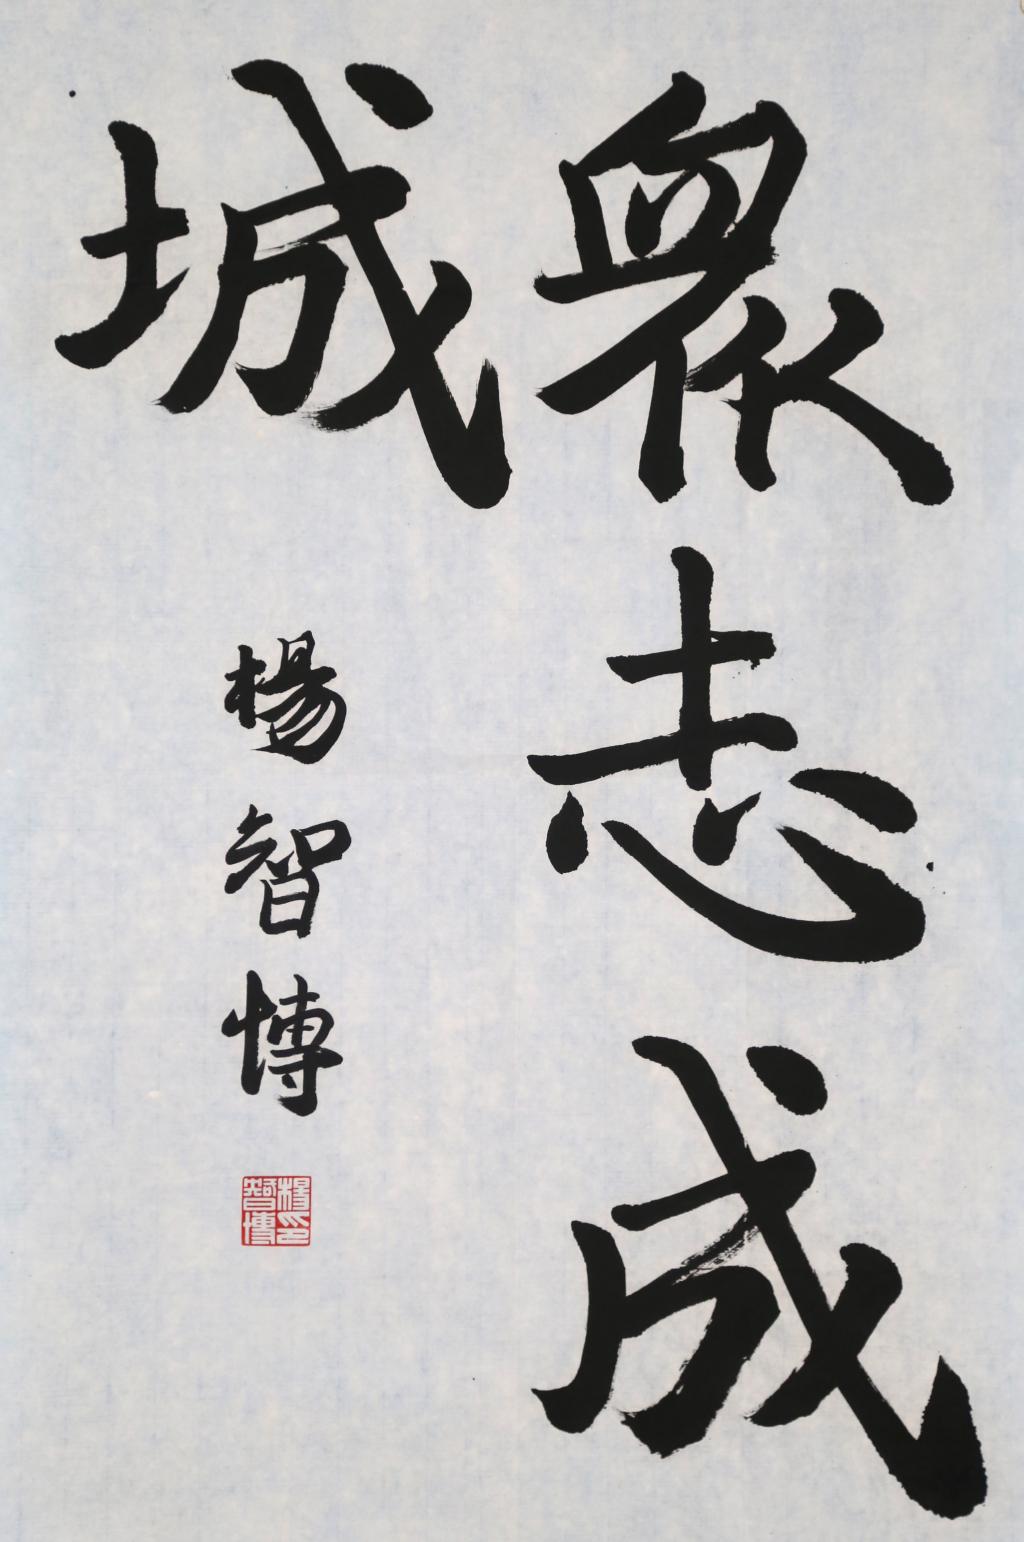 眾志成
城
楊智博
楊印
智博